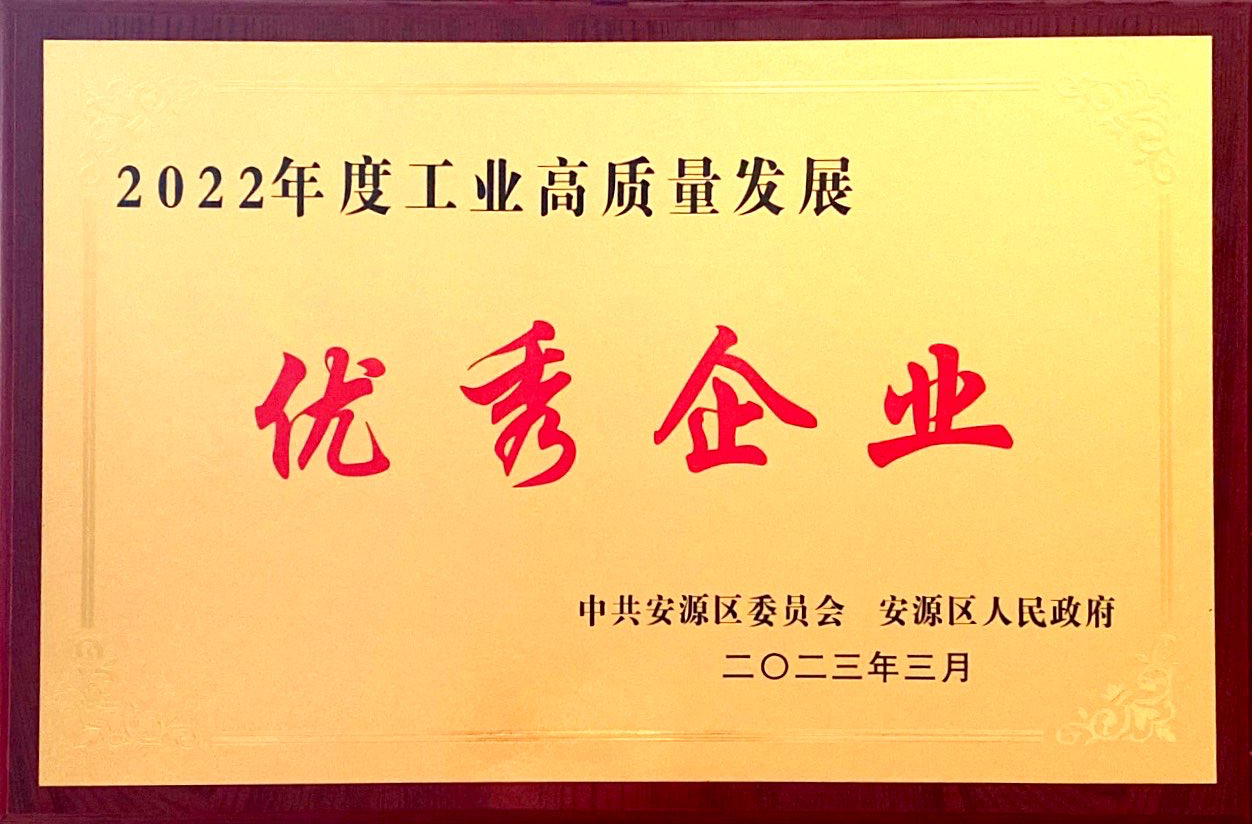 2022年度工业高质量发展
优秀企业
中共安源区委员会 安源区人民政府
二〇二三年三月